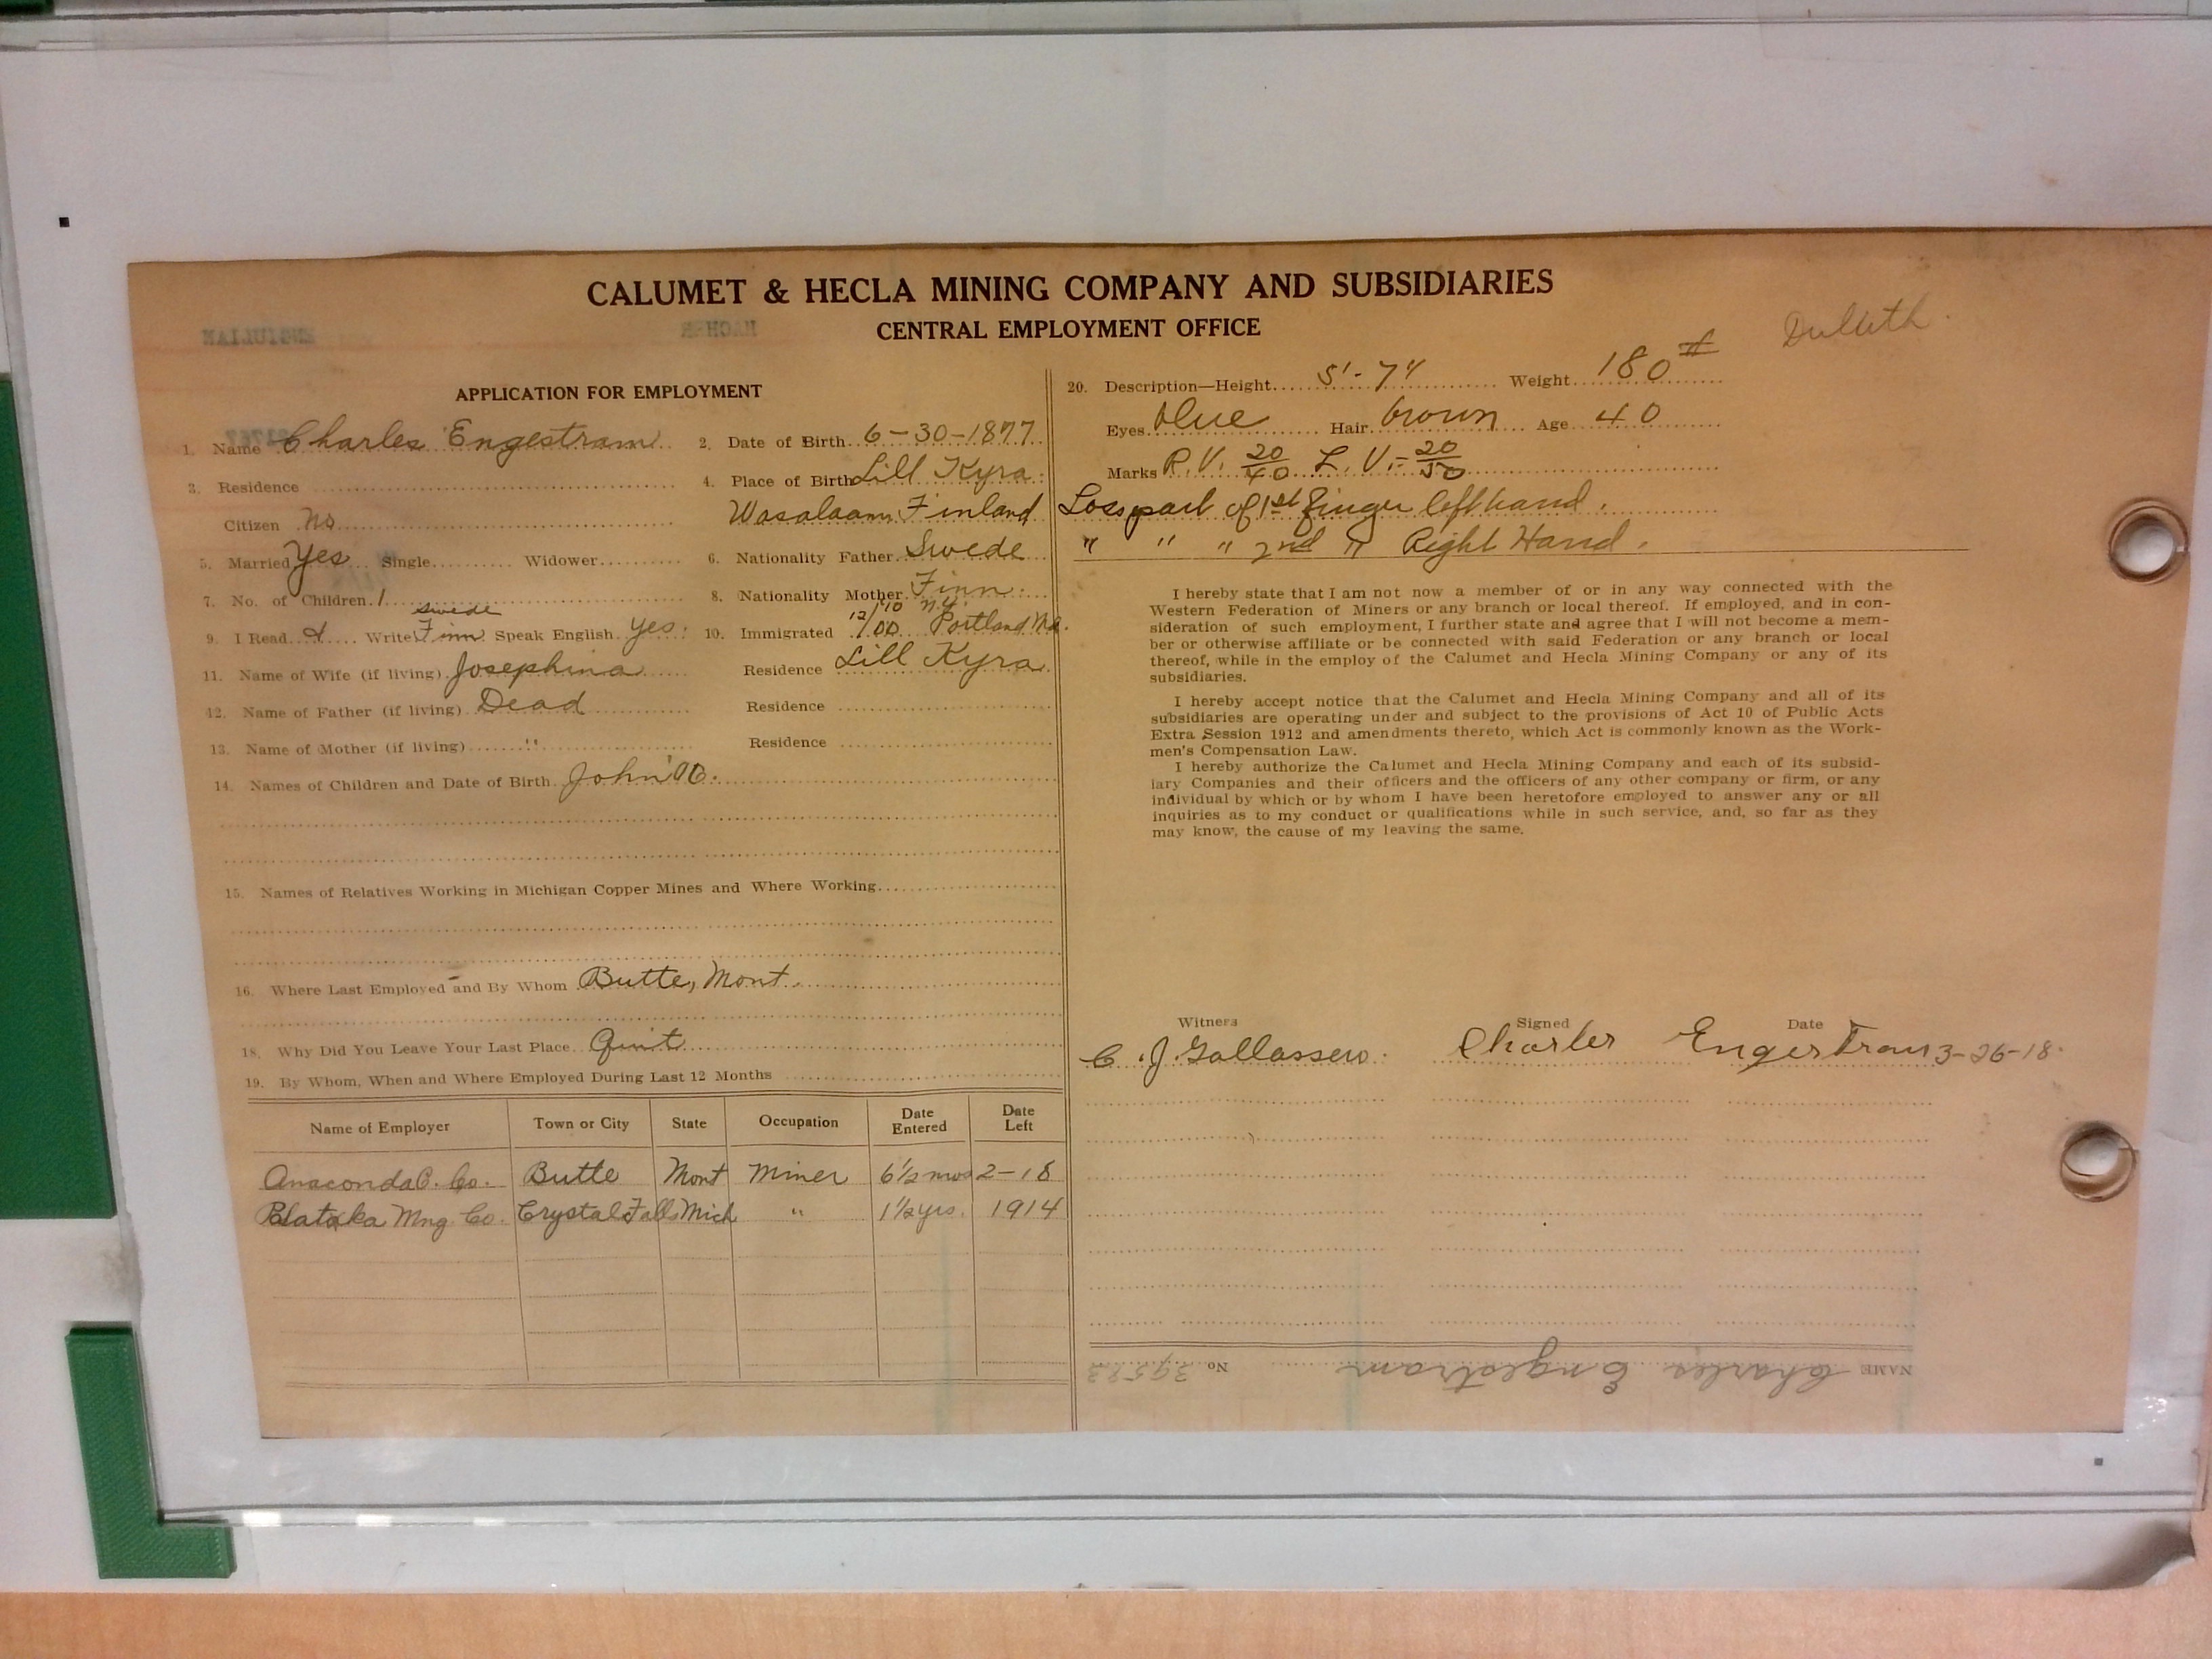 CALUMET & HECLA MINING COMPANY AND SUBSIDIARIES
CENTRAL EMPLOYMENT OFFICE
Duluth.
APPLICATION FOR EMPLOYMENT
1. Name Charles Engestram 2. Date of Birth 6-30-1877
3. Residence 4. Place of Birth Lill Kyra
Citizen no Wasalaan Finland
5. Married Yes Single Widower 6. Nationality Father Swede
7. No. of Children 1 8. Nationality Mother Finn
swede 12/10 N.Y.
9. I Read & Write Finn Speak English yes 10. Immigrated 1/00 Portland Me.
11. Name of Wife (if living) Josephina Residence Lill Kyra
12. Name of Father (if living) Dead Residence
13. Name of Mother (if living) " Residence
14. Names of Children and Date of Birth John '00.
15. Names of Relatives Working in Michigan Copper Mines and Where Working
16. Where Last Employed and By Whom Butte, Mont.
18. Why Did You Leave Your Last Place Quit
19. By Whom, When and Where Employed During Last 12 Months
Name of Employer Town or City State Occupation Date Entered Date Left
Anaconda C. Co. Butte Mont Miner 6 1/2 mos 2-18
Mng Co. Crystal Falls Mich " 1 1/2 yrs. 1914
20. Description—Height 5'-7" Weight 180#
Eyes blue Hair brown Age 40
Marks R.V. 20/40 L.V.- 20/50
Loss part of 1st finger left hand.
" " " 2nd " Right Hand.
I hereby state that I am not now a member of or in any way connected with the
Western Federation of Miners or any branch or local thereof. If employed, and in con-
sideration of such employment, I further state and agree that I will not become a mem-
ber or otherwise affiliate or be connected with said Federation or any branch or local
thereof, while in the employ of the Calumet and Hecla Mining Company or any of its
subsidiaries.
I hereby accept notice that the Calumet and Hecla Mining Company and all of its
subsidiaries are operating under and subject to the provisions of Act 10 of Public Acts
Extra Session 1912 and amendments thereto, which Act is commonly known as the Work-
men's Compensation Law.
I hereby authorize the Calumet and Hecla Mining Company and each of its subsid-
iary Companies and their officers and the officers of any other company or firm, or any
individual by which or by whom I have been heretofore employed to answer any or all
inquiries as to my conduct or qualifications while in such service, and, so far as they
may know, the cause of my leaving the same.
Witness Signed Date
C. J. Gallassero. Charles Engestram 3-26-18.
NAME Charles Engestram No. 39583